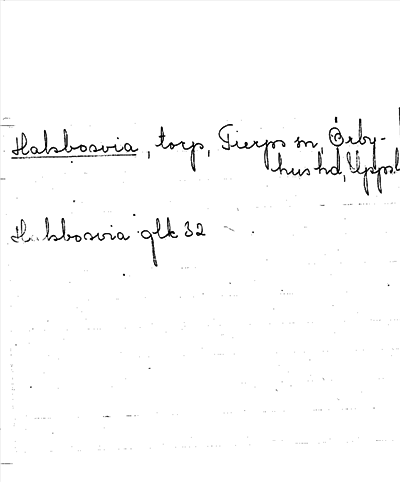 Halsbosvia, torp, Tierps sn, Örby-
hus hd, Uppsl
Halsbosvia glk 32